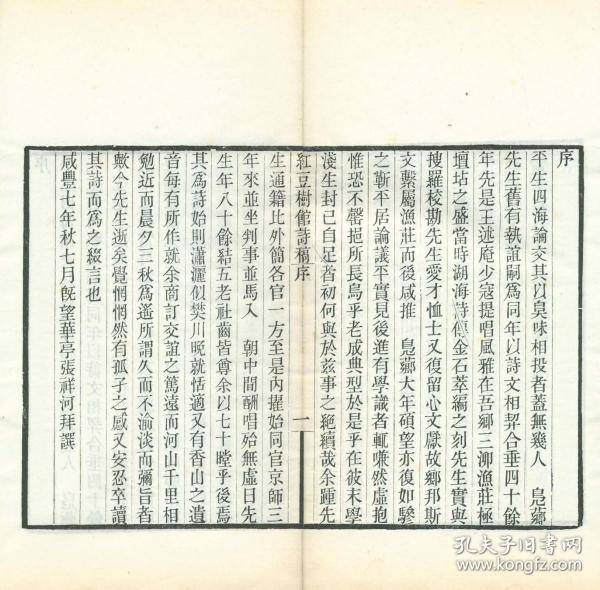 序
平生四海論交其以臭味相投者蓋無幾人　皀薌
先生舊有執誼嗣爲同年以詩文相契合垂四十餘
年先是王述庵少寇提唱風雅在吾鄉三泖漁莊極
壇坫之盛當時湖海詩傳金石萃編之刻先生實與
搜羅校勘先生愛才恤士又復留心文獻故鄉邦斯
文繫屬漁莊而後咸推　皀薌大年碩望亦復如驂
之靳平居論議平實見後進有學識者輒嗛然虛抱
惟恐不罄挹所長烏乎老成典型於是乎在彼末學
淺生封已自足者初何與於兹事之絶續哉余踵先
紅豆樹館詩稿序　一
生通籍比外簡各官一方至是内擢始同官京師三
年來並坐判事並馬入　朝中間酬唱殆無虛日先
生年八十餘結五老社齒皆尊余以七十瞠乎後焉
其爲詩始則瀟灑似樊川晚就恬適又有香山之遺
音每有所作就余商訂交誼之篤遠而河山千里相
勉近而晨夕三秋爲遙所謂久而不渝淡而彌旨者
歟今先生逝矣覺惘惘然有孤子之感又安忍卒讀
其詩而爲之綴言也
咸豐七年秋七月旣望華亭張祥河拜譔
孔夫子旧书网
www.kongfz.com